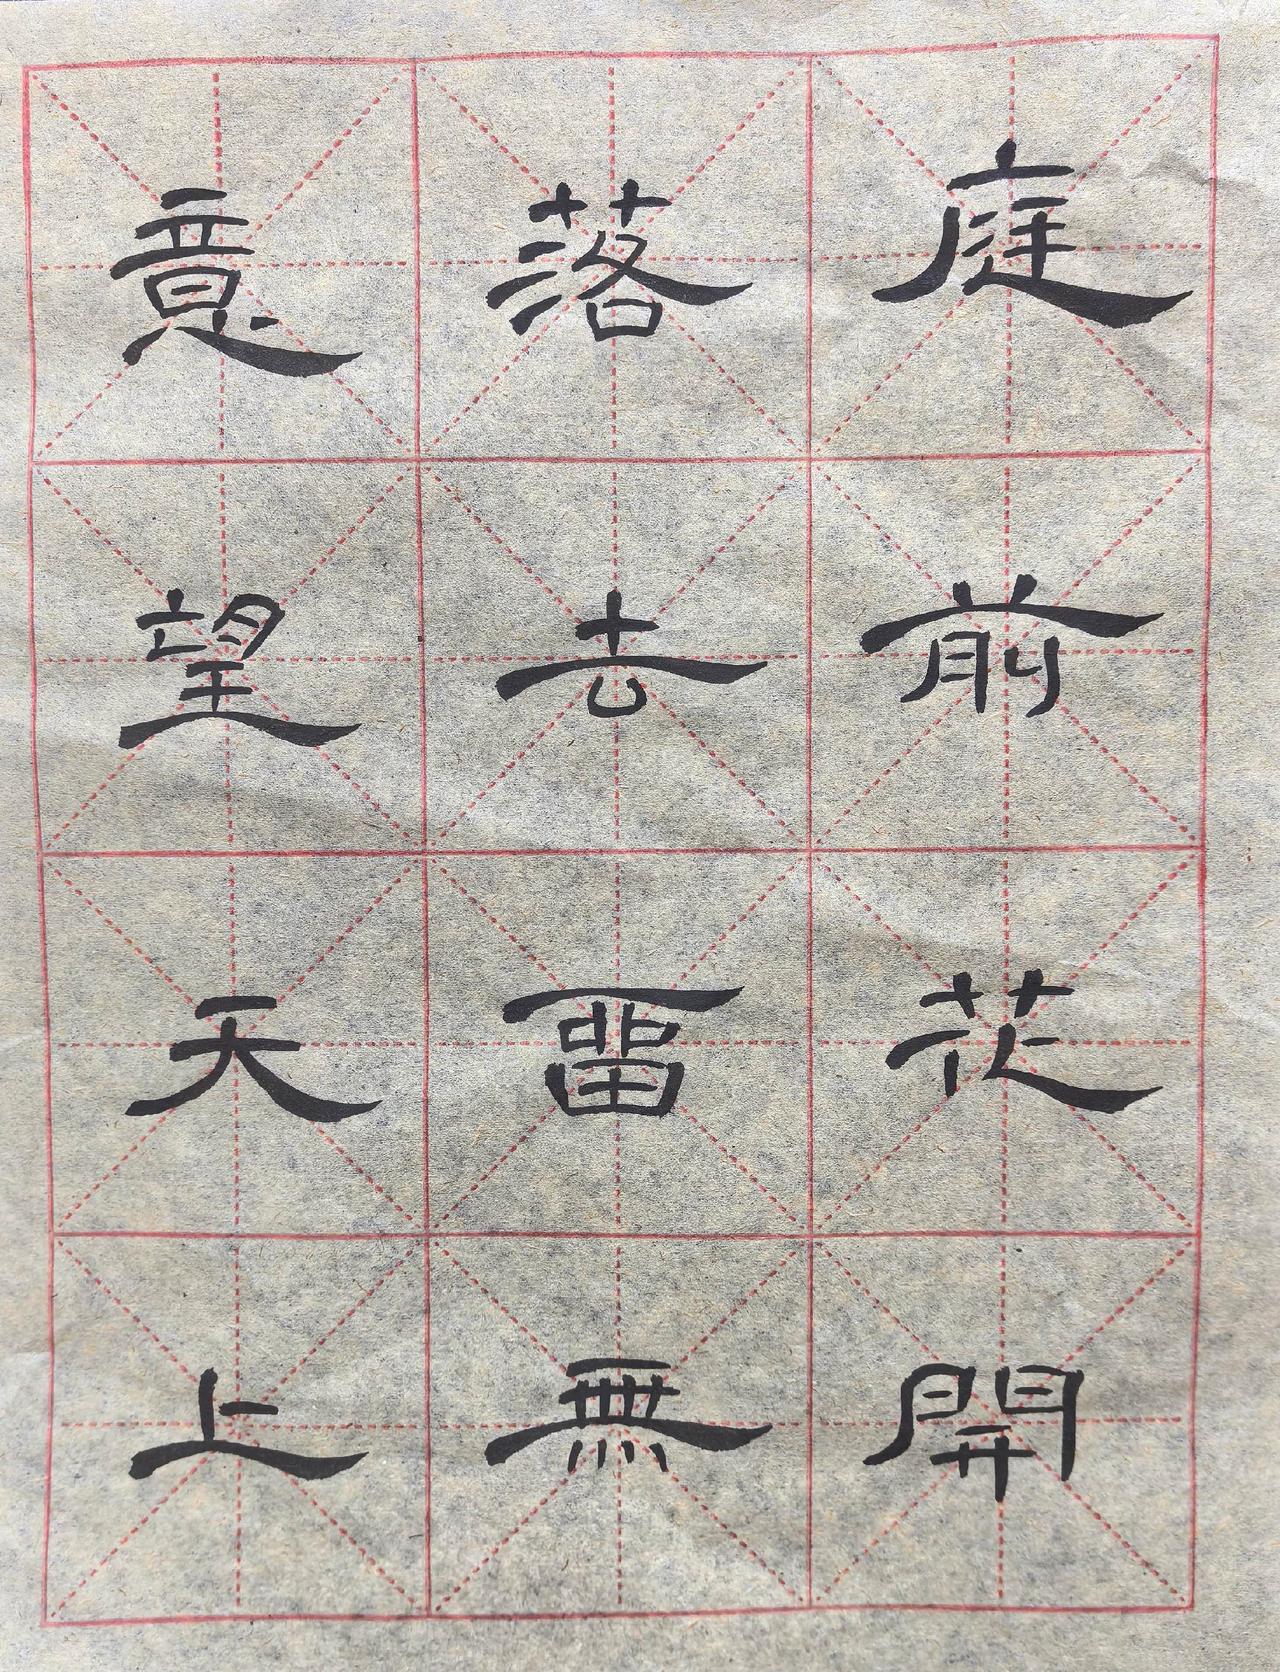 庭前花開
落去畱無
意望天上